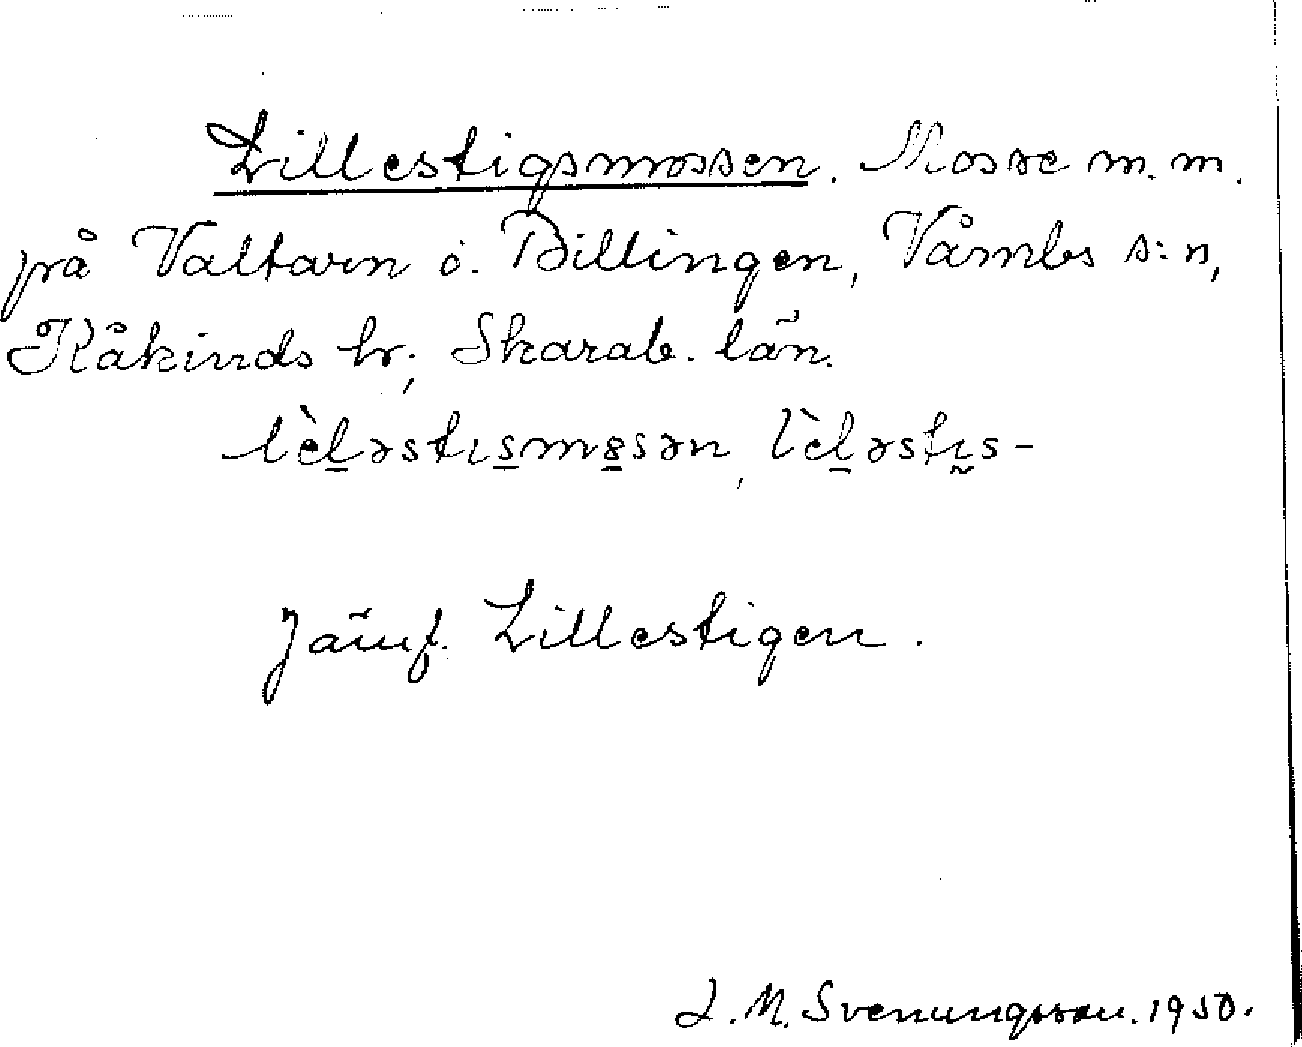 Lillestigsmossen. Mosse m.m.
på Valtarn ö. Billingen, Våmbs s:n,
Kåkinds hr; Skarab. län.
lèl̠əstɪs̠m8̠sən, lèl̠əstɪ̰s-
Jämf. Lillestigen.
L.M. Svenungsson. 1950.